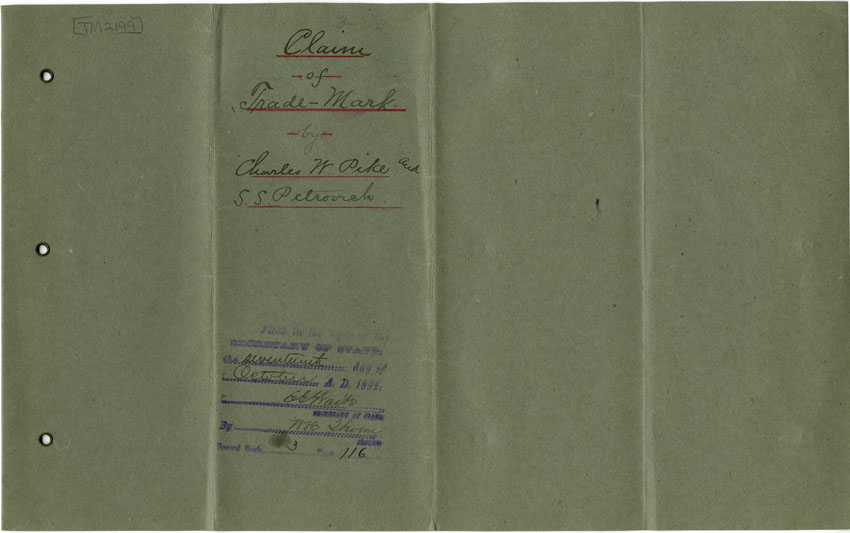 [JM2199]
Claim
of
Trade-Mark
by
Charles W Pike and
S. S. Petrovich
Filed in the office of the
SECRETARY OF STATE,
the seventeenth day of
October A. D. 189
SECRETARY OF STATE
By
DEPUTY
Record Book 3 Page 116